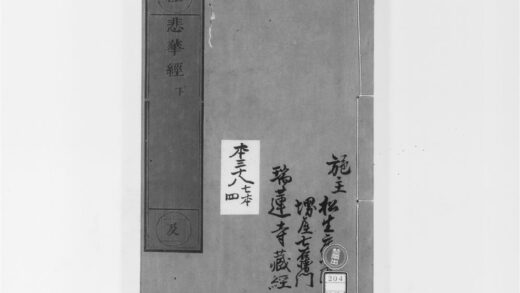 悲華經 下
及
本三十八
七本
四
施主 松生
堺屋七左衛門
瑞蓮寺藏經
禁帶出
204